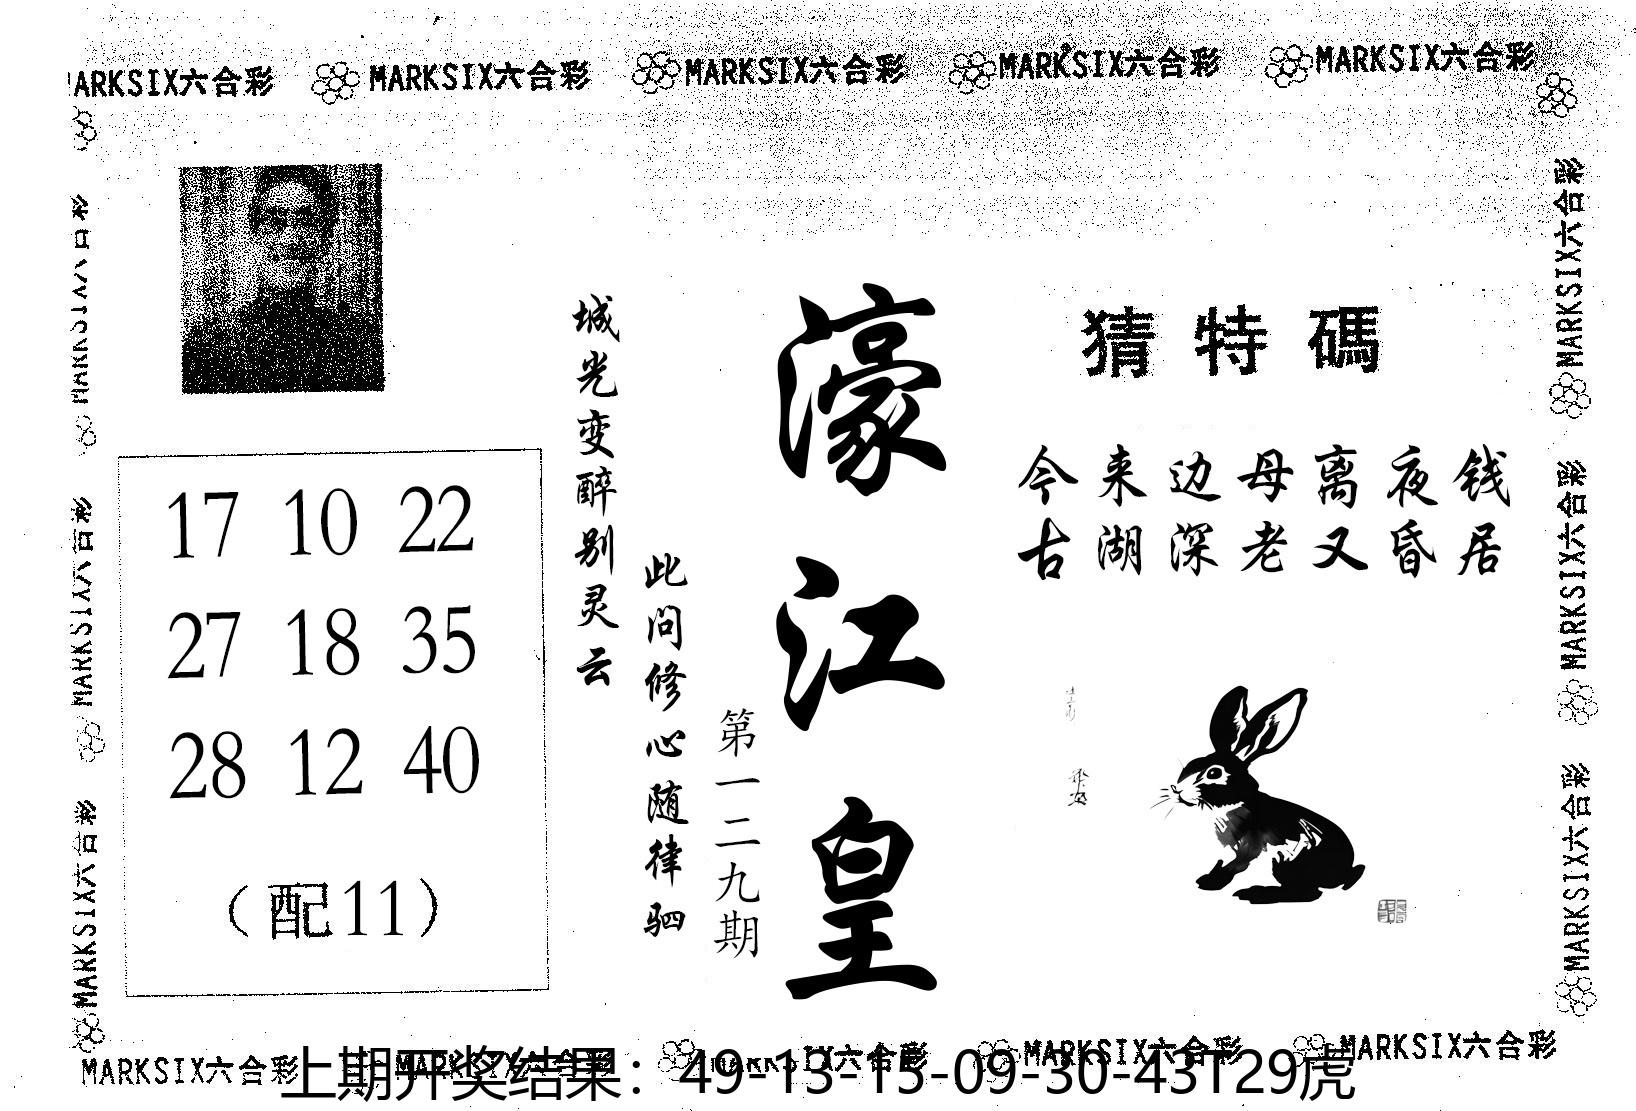 MARKSIX六合彩 MARKSIX六合彩 MARKSIX六合彩 MARKSIX六合彩 MARKSIX六合彩
MARKSIX六合彩
MARKSIX六合彩
MARKSIX六合彩
MARKSIX六合彩
MARKSIX六合彩
MARKSIX六合彩
17 10 22
27 18 35
28 12 40
(配11)
城光变醉别灵云
此问修心随律驷
第一二九期
濠江皇
猜特碼
今来边母离夜钱
古湖深老又昏居
MARKSIX六合彩 MARKSIX六合彩 MARKSIX六合彩 MARKSIX六合彩 MARKSIX六合彩
上期开奖结果：49-13-15-09-30-43T29虎